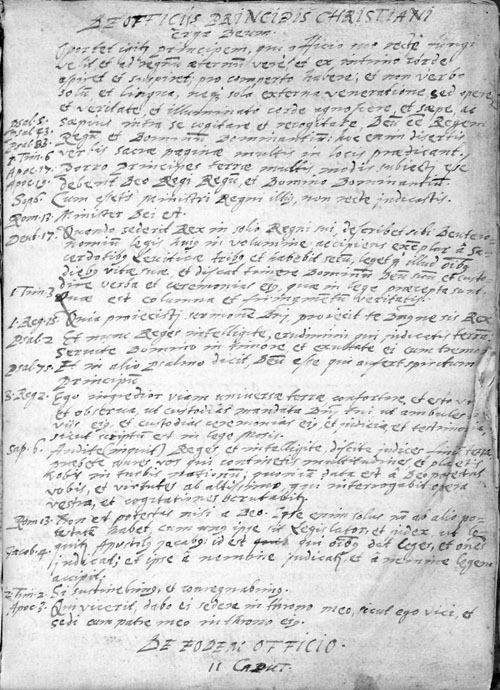 DE OFFICIIS PRINCIPIS CHRISTIANI
erga Deum.
Oportet isti principem, qui officio suo recte fungi
velit et ad regnum æternum vere, et ex intimo corde
aspiret et suspiret, pro comperto havere, et non verbo
solum et lingua, neque sola externa veneratione sed opere
et veritate, et illuminato corde agnoscere, et sæpe, ac
Psal. 5. sæpius intra se cogitare et recogitare, Deum esse Regem
Psal. 43. Regum et Dominum Dominantium: hoc enim disertis
Psal. 83. verbis sacræ paginæ multis in locis prædicant.
1 Tim. 6
Apoc. 17. Porro principes terræ multis modis subiecti esse
Apoc. 19. debent Deo Regi Regum, et Domino Dominantium.
Sap. 6. Cum essetis ministri Regni illius, non recte iudicastis.
Rom. 13. Minister Dei est.
Deut. 17. Quando sederit Rex in solio Regni sui, describet sibi Deutero
nomium legis huius in volumine accipiens exemplar a Sa-
cerdotibus Leviticæ tribus et habebit secum, legetque illud omnibus
diebus vitæ suæ, et discat timere Dominum Deum suum et custo
dire verba et ceremonias eius, quæ in lege præcepta sunt
1 Tim. 3. Quæ est columna et firmamentum veritatis.
1. Reg. 15 Quia proiecisti sermonem Dni, proiecit te Dnus ne sis Rex
Psal. 2 Et nunc Reges intelligite, erudimini qui iudicatis terram,
Servite Domino in timore et exultate ei cum tremore
Psal. 75. Et in alio Psalmo dicit, Deum esse qui aufert spiritum
Principum
3. Reg. 2. Ego ingredior viam universæ terræ confortare, et esto vir
et observa, ut custodias mandata Dni, tui ut ambules in
viis eius, et custodias ceremonias eius, et iudicia et testimonia
sicut scriptum est in lege Mosis.
Sap. 6. Audite (inquit) Reges, et intelligite, discite iudices finium terræ
præbete aures vos qui continetis multitudines, et placetis
vobis in turbis nationum, quoniam data est a Deo potestas
vobis, et virtus ab altissimo, qui interrogabit opera
vestra, et cogitationes scrutabitur.
Rom. 13. Non est potestas nisi a Deo. Ipse enim solus non ab alio po-
testatem habet, cum unus ipse sit Legislator, et iudex, ut lo
Jacob. 4. quitur Apostolus Jacobus: id est qui omnibus dat leges, et omnes
iudicat, et ipse a nemine iudicatur, et a nemine legem
accipit.
2 Tim. 2. Si sustinebimus, et conregnabimus.
Apoc. 3. Qui vicerit, dabo ei sedere in throno meo, sicut ego vici, et
sedi cum patre meo in throno eius.
DE EODEM OFFICIO.
II CAPUT.